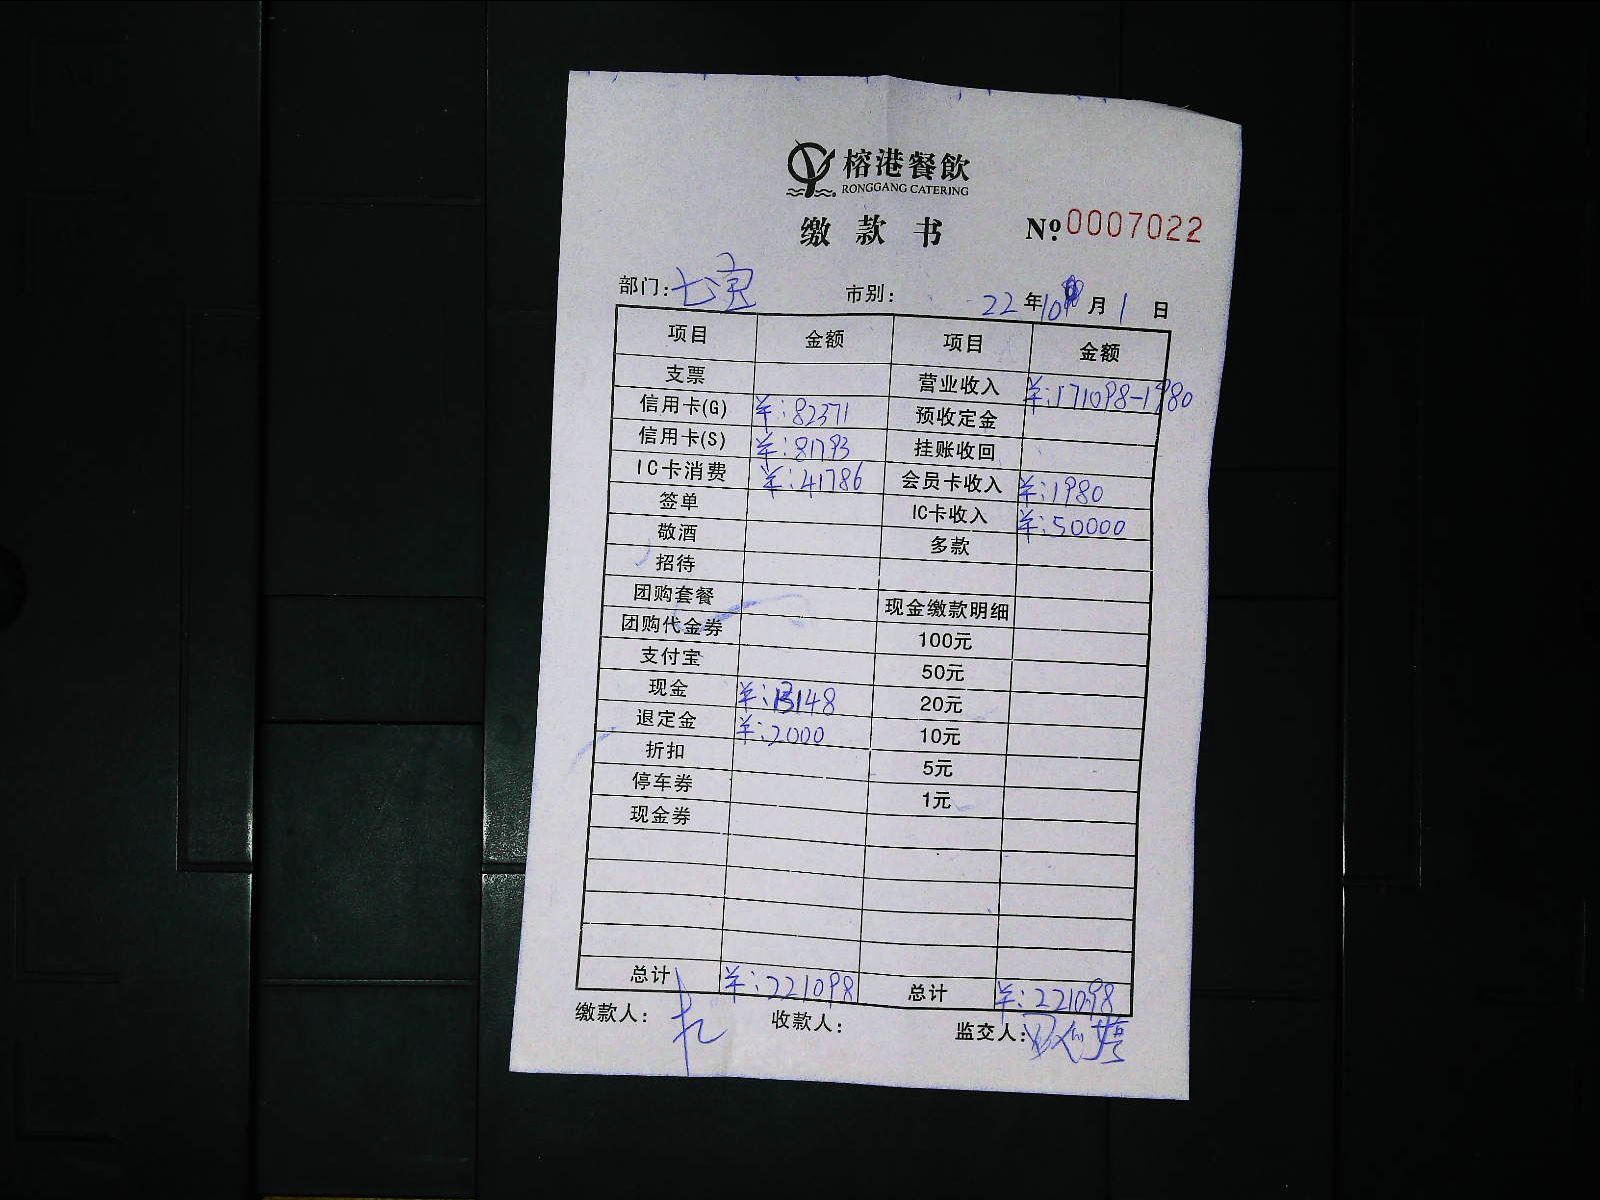 榕港餐飲
RONGGANG CATERING
缴款书 Nº 0007022
部门: 市别: 22年10月1日
项目 金额 项目 金额
支票 营业收入 ¥:171098-1980
信用卡(G) ¥:82371 预收定金
信用卡(S) ¥:81793 挂账收回
IC卡消费 ¥:41786 会员卡收入 ¥:1980
签单 IC卡收入 ¥:50000
敬酒 多款
招待
团购套餐 现金缴款明细
团购代金券 100元
支付宝 50元
现金 ¥:13148 20元
退定金 ¥:2000 10元
折扣 5元
停车券 1元
现金券
总计 ¥:221098 总计 ¥:221098
缴款人: 收款人: 监交人: